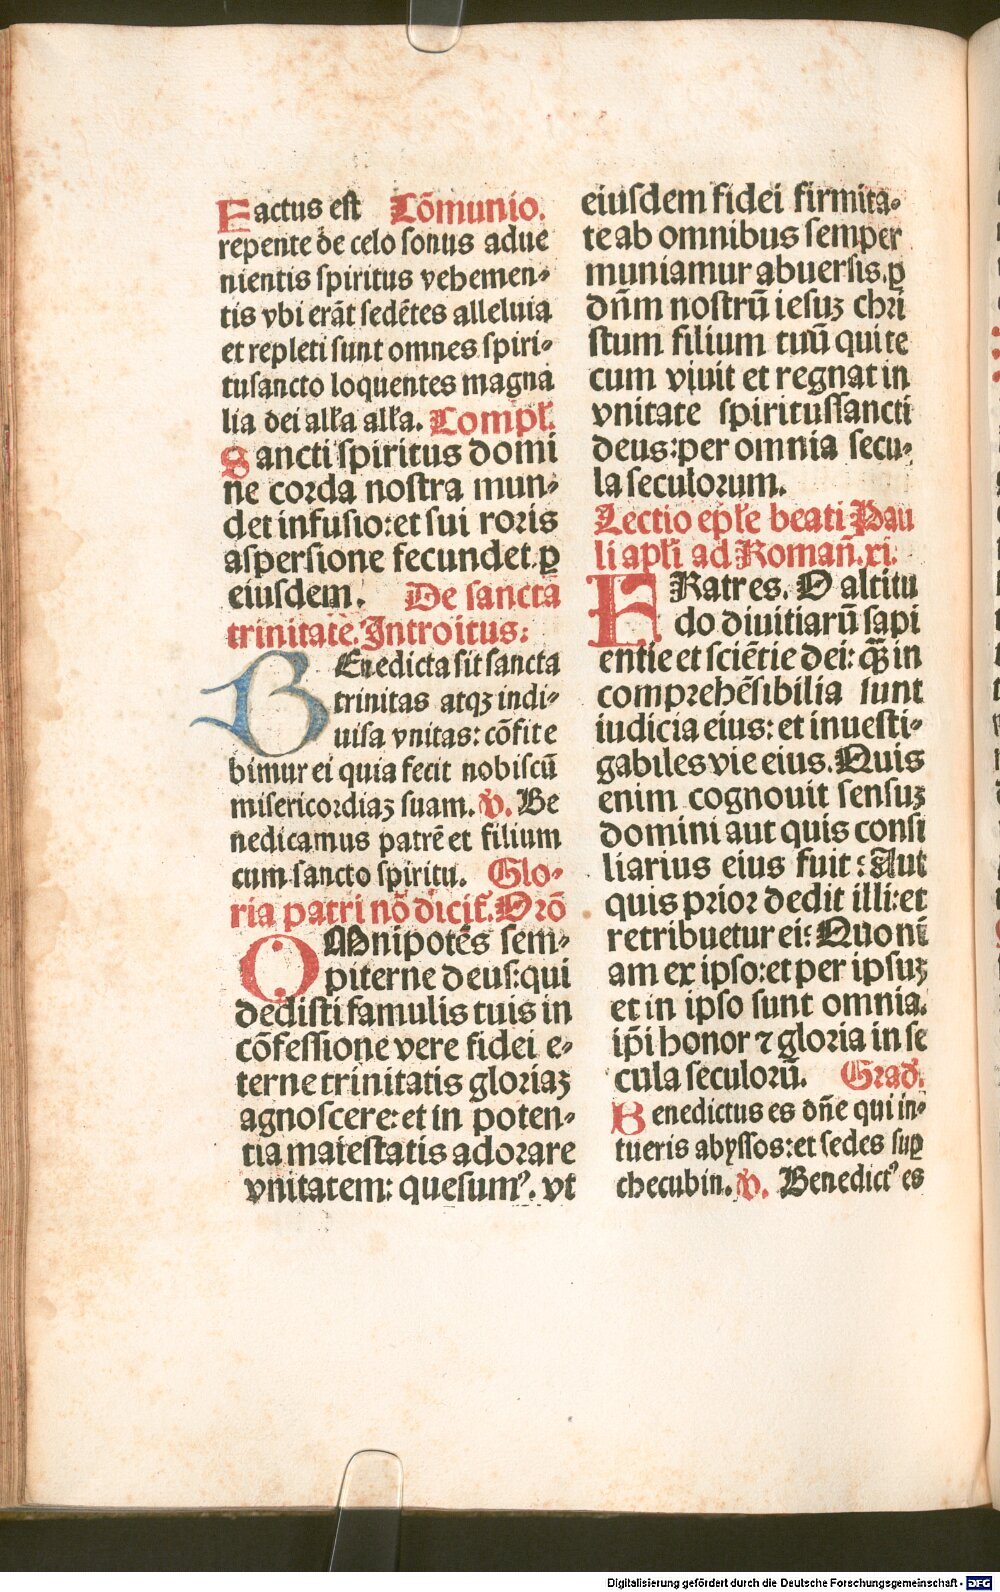 Factus est Cōmunio.
repente de celo sonus adue
nientis spiritus vehemen⸗
tis vbi erāt sedētes alleluia
et repleti sunt omnes spiri⸗
tusancto loquentes magna
lia dei alľa alľa. Compľ.
Sancti spiritus domi
ne corda nostra mun⸗
det infusio: et sui roris
aspersione fecundet. ꝑ
eiusdem. De sancta
trinitate. Introitus:
BEnedicta sit sancta
trinitas atqꝫ indi⸗
uisa vnitas: cōfite
bimur ei quia fecit nobiscū
misericordiaꝫ suam. ℣. Be
nedicamus patrē et filium
cum sancto spiritu. Glo⸗
ria patri nō dicit᷑. Orō
OMnipotēs sem⸗
piterne deus: qui
dedisti famulis tuis in
cōfessione vere fidei e⸗
terne trinitatis gloriaꝫ
agnoscere: et in poten⸗
tia maiestatis adorare
vnitatem: quesumꝰ. vt
eiusdem fidei firmita⸗
te ab omnibus semper
muniamur abuersis. ꝑ
dn̄m nostrū iesuꝫ chri
stum filium tuū qui te
cum viuit et regnat in
vnitate spiritussancti
deus: per omnia secu⸗
la seculorum.
Lectio epľe beati Pau
li apľi ad Roman̄. xi.
FRatres. O altitu
do diuitiarū sapi
entie et sciētie dei: qꝫ in
comprehēsibilia sunt
iudicia eius: et inuesti⸗
gabiles vie eius. Quis
enim cognouit sensuꝫ
domini aut quis consi
liarius eius fuit: Aut
quis prior dedit illi: et
retribuetur ei: Quoni
am ex ipso: et per ipsuꝫ
et in ipso sunt omnia.
ip̄i honor ⁊ gloria in se
cula seculorū. Grad.
Benedictus es dn̄e qui in⸗
tueris abyssos: et sedes suꝑ
checubin. ℣. Benedictꝰ es
Digitalisierung gefördert durch die Deutsche Forschungsgemeinschaft - DFG